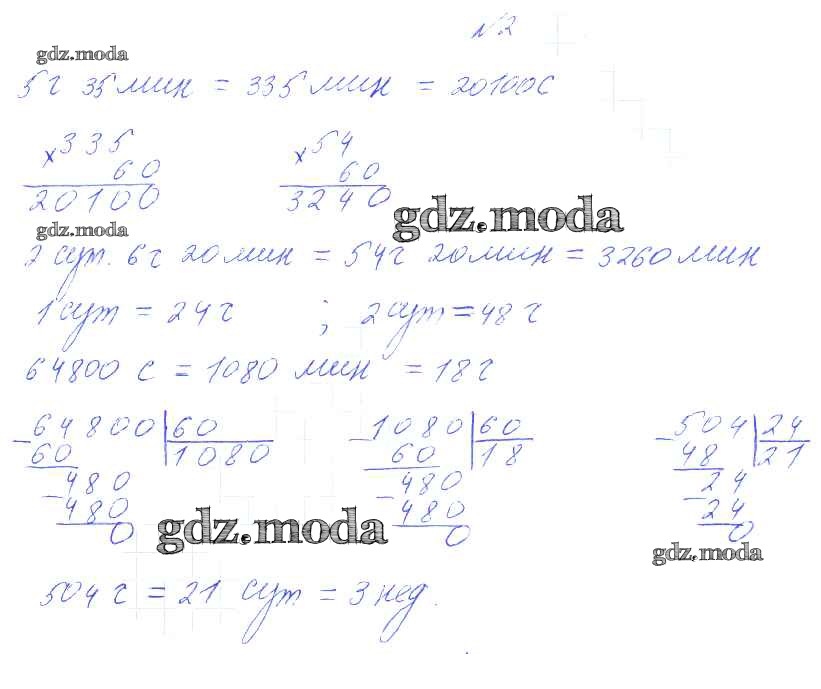 №2
gdz.moda
5 ч 35 мин = 335 мин = 20100 с
× 335 × 54
60 60
20100 3240
gdz.moda
gdz.moda
2 сут. 6 ч 20 мин = 54 ч 20 мин = 3260 мин
1 сут = 24 ч ; 2 сут = 48 ч
64800 с = 1080 мин = 18 ч
- 64800 60 - 1080 60 - 504 24
60 1080 60 18 48 21
- 480 - 480 - 24
480 480 24
0 0 0
gdz.moda
gdz.moda
504 ч = 21 сут. = 3 нед.